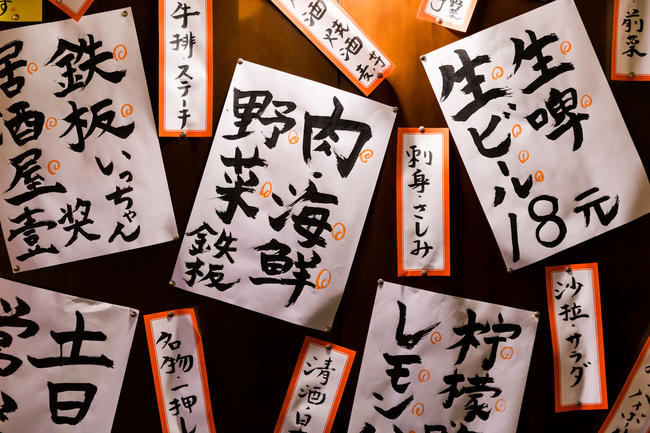 前菜
野菜
牛排・ステーチ
鉄板いっちゃん
居酒屋壹
奖
肉・海鮮
野菜
鉄板
刺身・さしみ
生啤
生ビール
18元
沙拉・サラダ
土日
名物一押し
清酒・日
柠檬
レモン